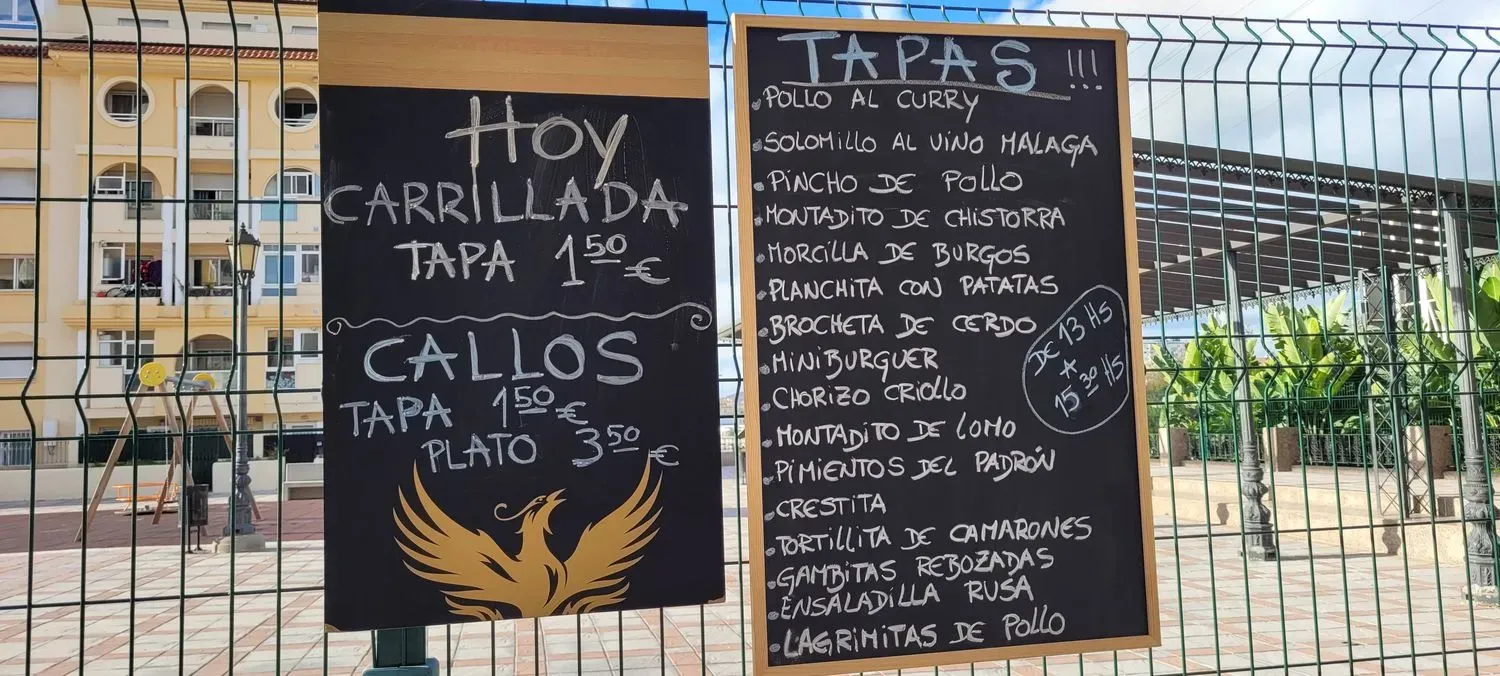 HOY
CARRILLADA
TAPA 1⁵⁰ €
CALLOS
TAPA 1⁵⁰ €
PLATO 3⁵⁰ €
TAPAS !!!
• POLLO AL CURRY
• SOLOMILLO AL VINO MALAGA
• PINCHO DE POLLO
• MONTADITO DE CHISTORRA
• MORCILLA DE BURGOS
• PLANCHITA CON PATATAS
• BROCHETA DE CERDO
• MINIBURGUER
• CHORIZO CRIOLLO
• MONTADITO DE LOMO
• PIMIENTOS DEL PADRÓN
• CRESTITA
• TORTILLITA DE CAMARONES
• GAMBITAS REBOZADAS
• ENSALADILLA RUSA
• LAGRIMITAS DE POLLO
DE 13 HS
A
15³⁰ HS